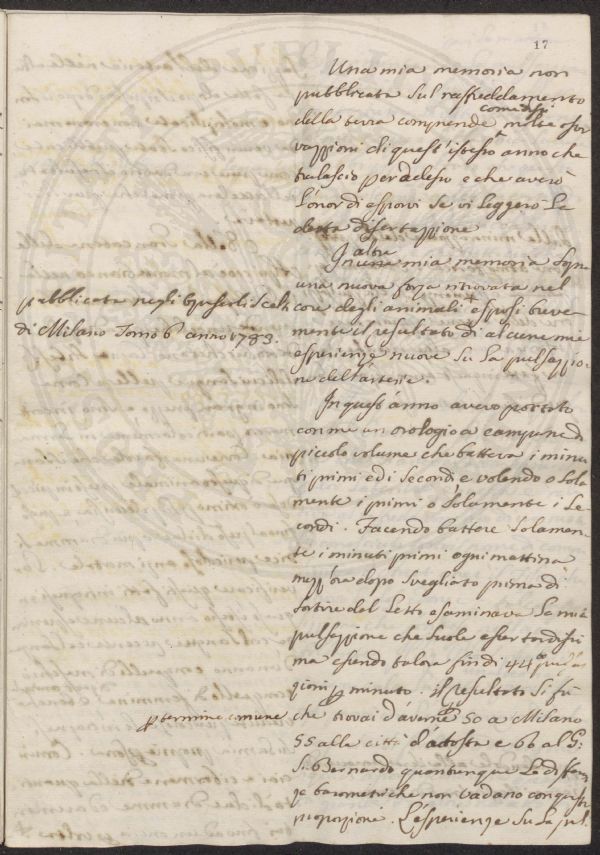 17
Una mia memoria non
pubblicata sul raffreddamento
della terra comprende molte osser
vazzioni di quest'istesso anno che
tralascio per adesso e che averò
l'onor di esporvi se vi leggerò La
detta dissertazione
In altra mia memoria sopra
una nuova forza ritrovata nel
core degli animali + esposi breve-
mente il resultato di alcune mie
esperienze nuove su La pulsazzio-
ne dell'arterie.
pubblicata negli Opuscoli Scelti
di Milano Tomo 6° anno 1783.
In quest'anno avevo portato
con me un orologio a campane di
piccolo volume che batteva i minu
ti primi ed i secondi e volendo o sola
mente i primi o solamente i se
condi. Facendo battere solamen-
te i minuti primi ogni mattina
mezz'ora dopo svegliato prima di
sortire del Letto esaminava La mia
pulsazzione che suole esser tardissi
ma essendo talora fin di 44
minuto. il resultato si fù
che trovai d'averne 50 a Milano
p termine comune
55 alla città d'Aosta e 60 al G:
S. Bernardo quantunque Le distan
ze barometriche non vadano con questa
proporzione. L'esperienze su La pul